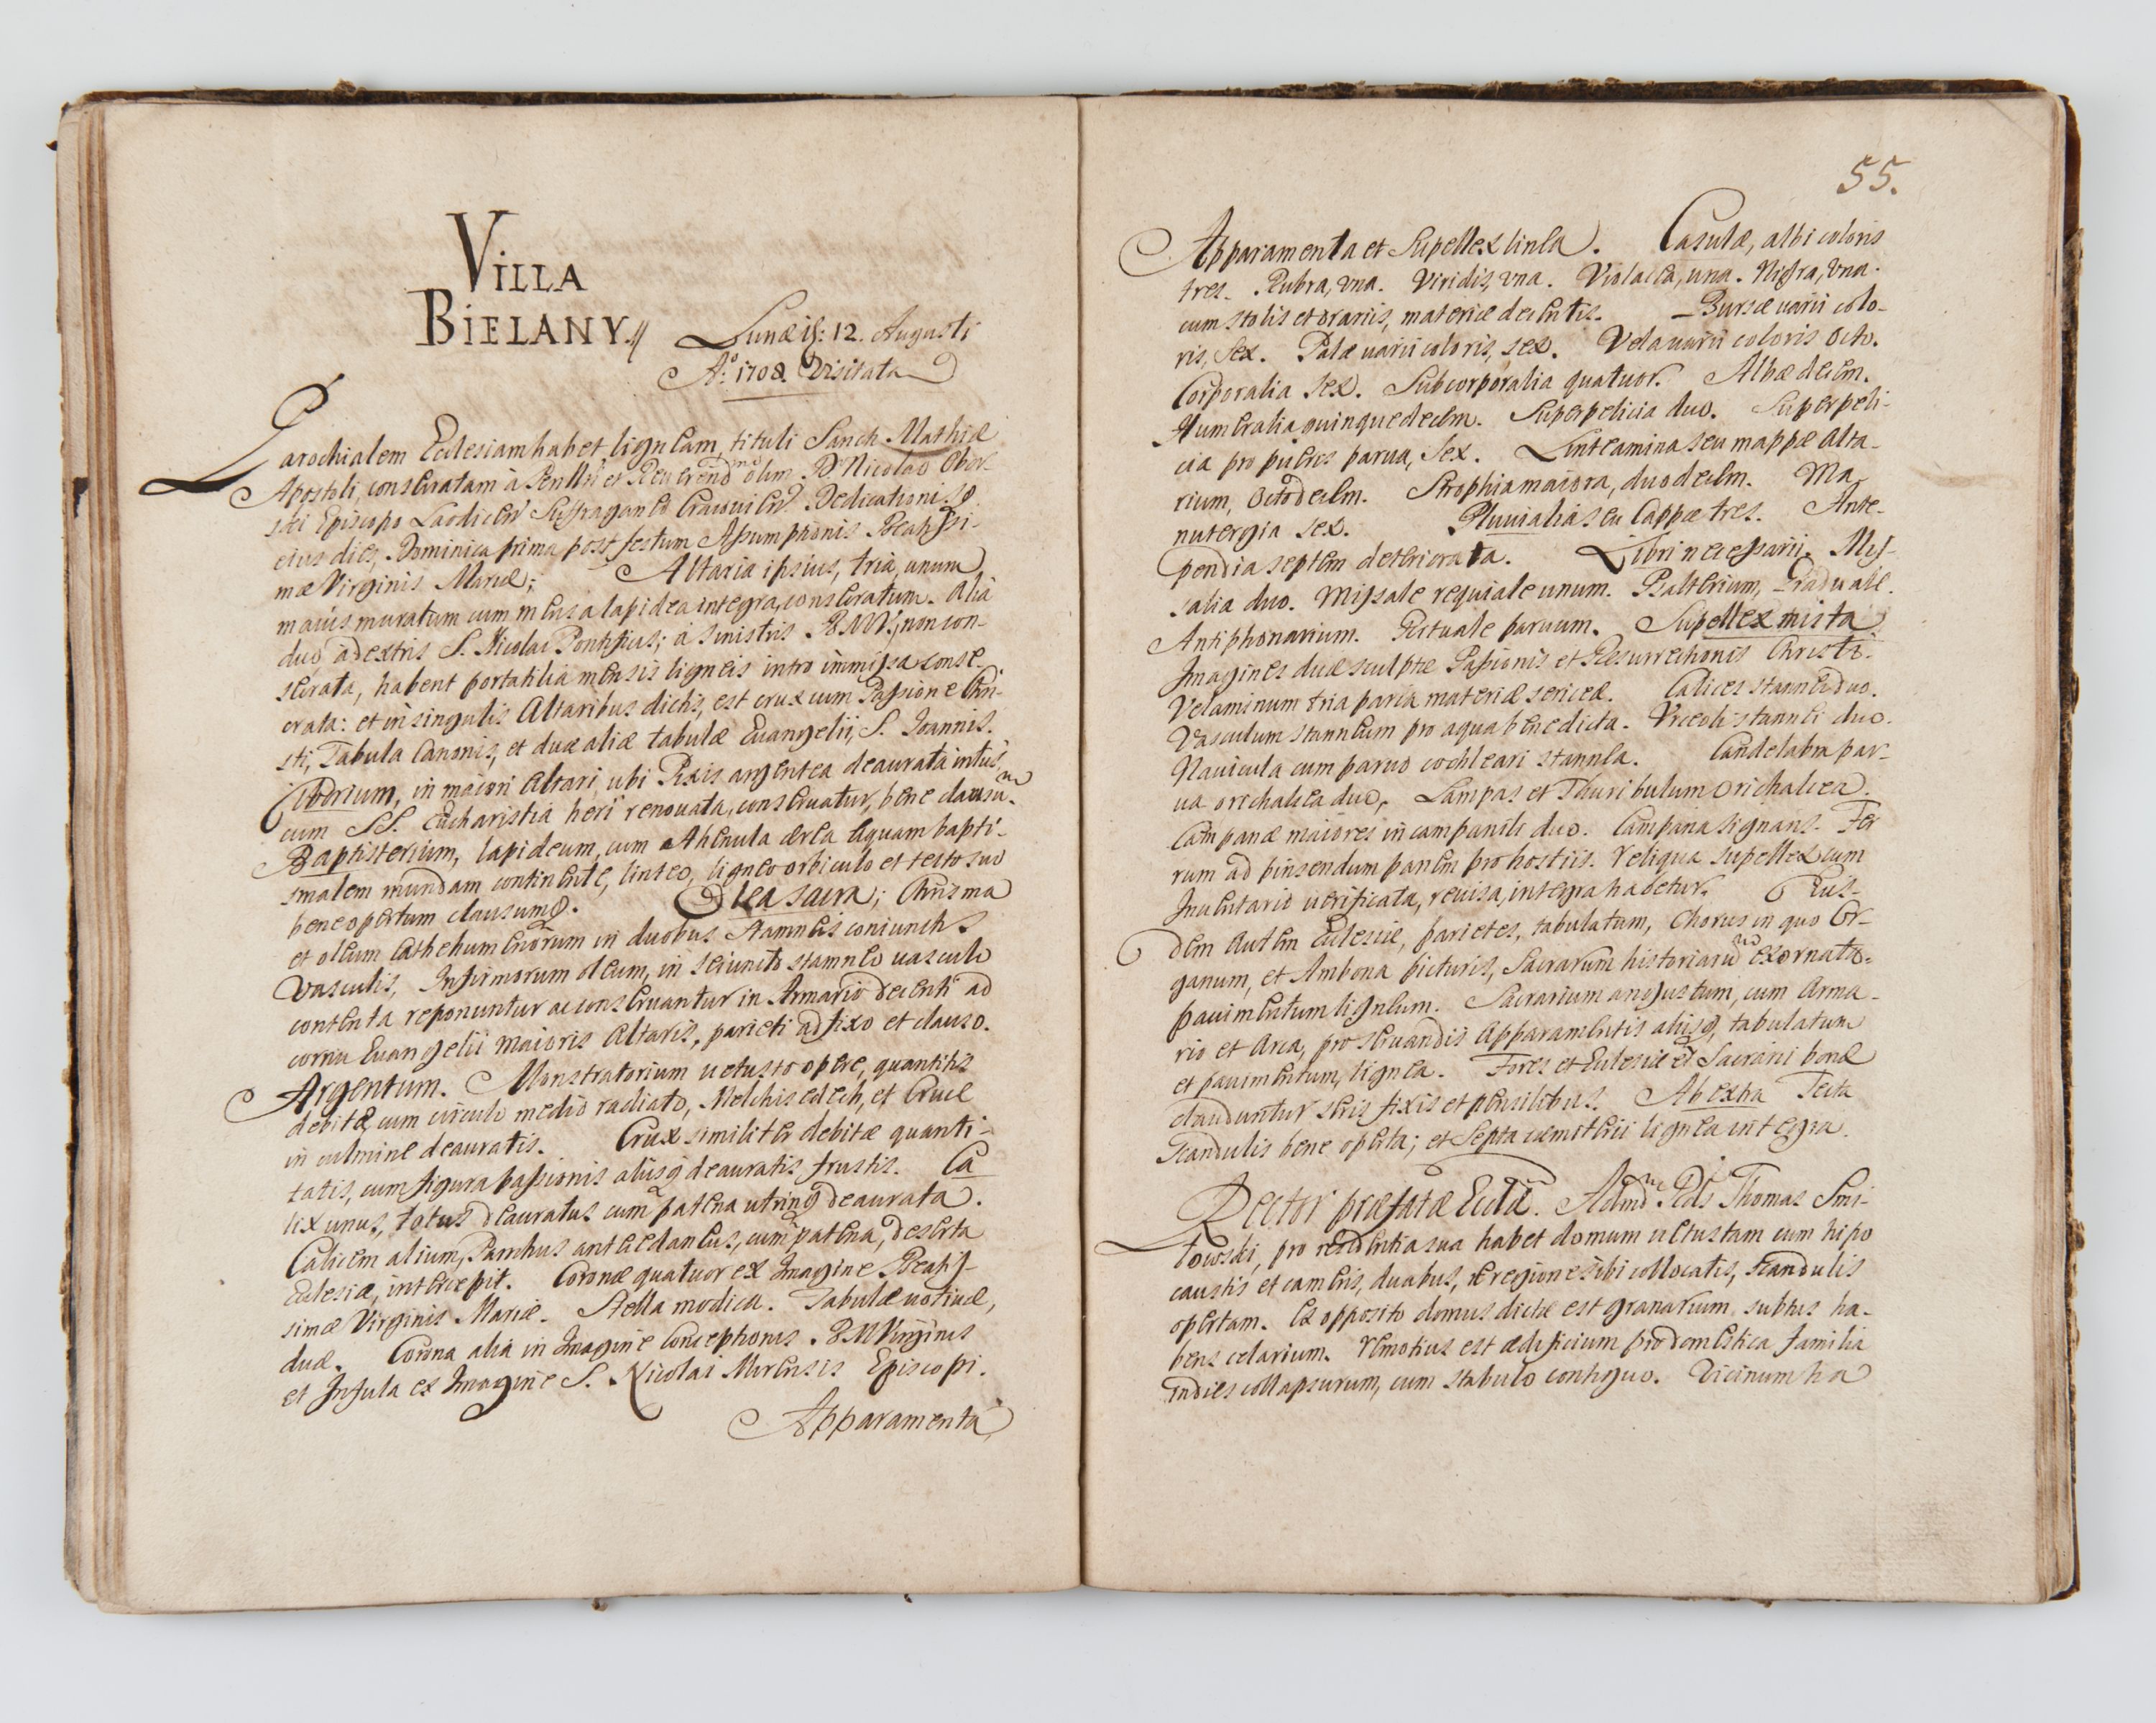 VILLA
BIELANY.
Lunæ 12. Augusti
Aº: 1708. Visitata
Parochialem Ecclesiam habet ligneam, tituli Sancti Mathiæ
Apostoli, consecratam à et olim D. Nicolao Obor-
ski Episcopo Laodicen Suffraganeo Cracovien. Dedicationisq
eius dies, Dominica prima post festum Assumptionis Beatissi-
mæ Virginis Mariæ; Altaria ipsius, tria, unum
maius muratum cum mensa lapidea integra, consecratum. Alia
duo, à dextris S. Nicolai Pontificis; à sinistris BMV., non con-
secrata, habent portatilia mensis ligneis intro immissa conse-
crata: et in singulis Altaribus dictis, est crux cum Passione Chri-
sti, Tabula Canonis, et duæ aliæ tabulæ Evangelii, S. Joannis.
Ciborium, in maiori Altari, ubi Pixis argentea deaurata intus,
cum SS. Eucharistia heri renouata, conseruatur, bene clausu.m
Baptisterium, lapideum, cum Ahenula ærea aquam bapti-
smalem mundam continente, linteo, ligneo orbiculo et testo suo
bene opertum clausumq.
Olea sacra; Chrisma
et oleum Cathehumenorum in duobus stamneis coniunctis
vasculis, Infirmorum oleum, in seiuncto stamneo uasculo
contenta reponuntur ac conseruantur in Armario decenti ad
cornu Euangelii maioris Altaris, parieti adfixo et clauso.
Argentum. Monstratorium uetusto opere, quantitatis
debitæ, cum circulo medio radiato, Melchisedech, et Cruce
in culmine deauratis. Crux similiter debitæ quanti-
tatis, cum figura passionis aliisq deauratis frustis. Ca
lix unus, totus deauratus cum patena utrinq deaurata.
Calicem alium, Parochus antecedaneus, cum patena, deserta
Ecclesia, intercepit. Coronæ quatuor ex Imagine Beatis-
simæ Virginis Mariæ. Stella modica. Tabulæ uotiuæ,
duæ. Corona alia in Imagine Conceptionis B M Virginis
et Infula ex Imagine S. Nicolai Mirensis Episcopi.
Apparamenta
55.
Apparamenta et Supellex lintea. Casulæ, albi coloris
tres. Rubra, una. Viridis, una. Violacea, una. Nigra, una.
cum stolis et orariis, materiæ decentis. Bursæ uarii colo-
ris, sex. Palæ uarii coloris, sex. Vela uarii coloris octo.
Corporalia sex. Subcorporalia quatuor. Albæ decem.
Humeralia quinquedecem. Superpelicia duo. Superpeli-
cia pro pueris parua, sex. Linteamina seu mappæ Alta-
rium, octodecem. Strophia maiora, duodecem. Ma
nutergia sex. Pluuialia seu Cappæ tres. Ante-
pendia septem deteriorata. Libri necessarii. Mis-
salia duo. Missale requiale unum. Psalterium, Graduale.
Antiphonarium. Rituale paruum. Supellex mista
Imagines duæ sculptæ Passionis et Resurrectionis Christi.
Velaminum tria paria materiæ sericeæ. Calices stannei duo.
Vasculum stanneum pro aqua benedicta. Urceoli stannei duo.
Nauicula cum paruo cochleari stannea. Candelabra par-
ua orichalcea duo. Lampas et Thuribulum orichalcea.
Campanæ maiores in campanili duo. Campana signans. Fer
rum ad pinsendum panem pro hostiis. reliqua supellex cum
Inuentario uerificata, reuisa, integra habetur. Eius-
dem autem Ecclesiæ, parietes, tabulatum, Chorus in quo Or-
ganum, et Ambona picturis, Sacrarum historiaru exornata.
pauimentum ligneum. Sacrarium angustum, cum Arma-
rio et Arca, pro seruandis Apparamentis aliisq, tabulatum
et pauimentum, lignea. Fores et Ecclesiæ et Sacrarii bonæ
clauduntur seris fixis et pensilibus. Ab extra Tecta
scandulis bene operta; et Septa cæmiterii lignea integra.
Rector præfatæ Eccliæ. Thomas Smi-
towski, pro residentia sua habet domum uetustam cum hipo
caustis et cameris, duabus, è regione sibi collocatis, scandulis
opertam. Ex opposito domus dictæ est granarium, subtus ha-
bens celarium. remotius est ædificium pro domestica familia
indies collapsurum, cum stabulo contiguo. Vicinum ha